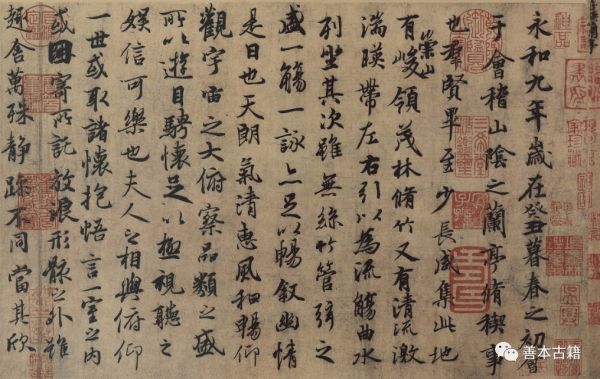 永和九年歲在癸丑暮春之初會
于會稽山陰之蘭亭脩禊事
也羣賢畢至少長咸集此地
有崇山峻領茂林脩竹又有清流激
湍暎帶左右引以為流觴曲水
列坐其次雖無絲竹管弦之
盛一觴一詠亦足以暢叙幽情
是日也天朗氣清惠風和暢仰
觀宇宙之大俯察品類之盛
所以遊目騁懷足以極視聽之
娛信可樂也夫人之相與俯仰
一世或取諸懷抱悟言一室之內
或因寄所託放浪形骸之外雖
趣舍萬殊靜躁不同當其欣
善本古籍